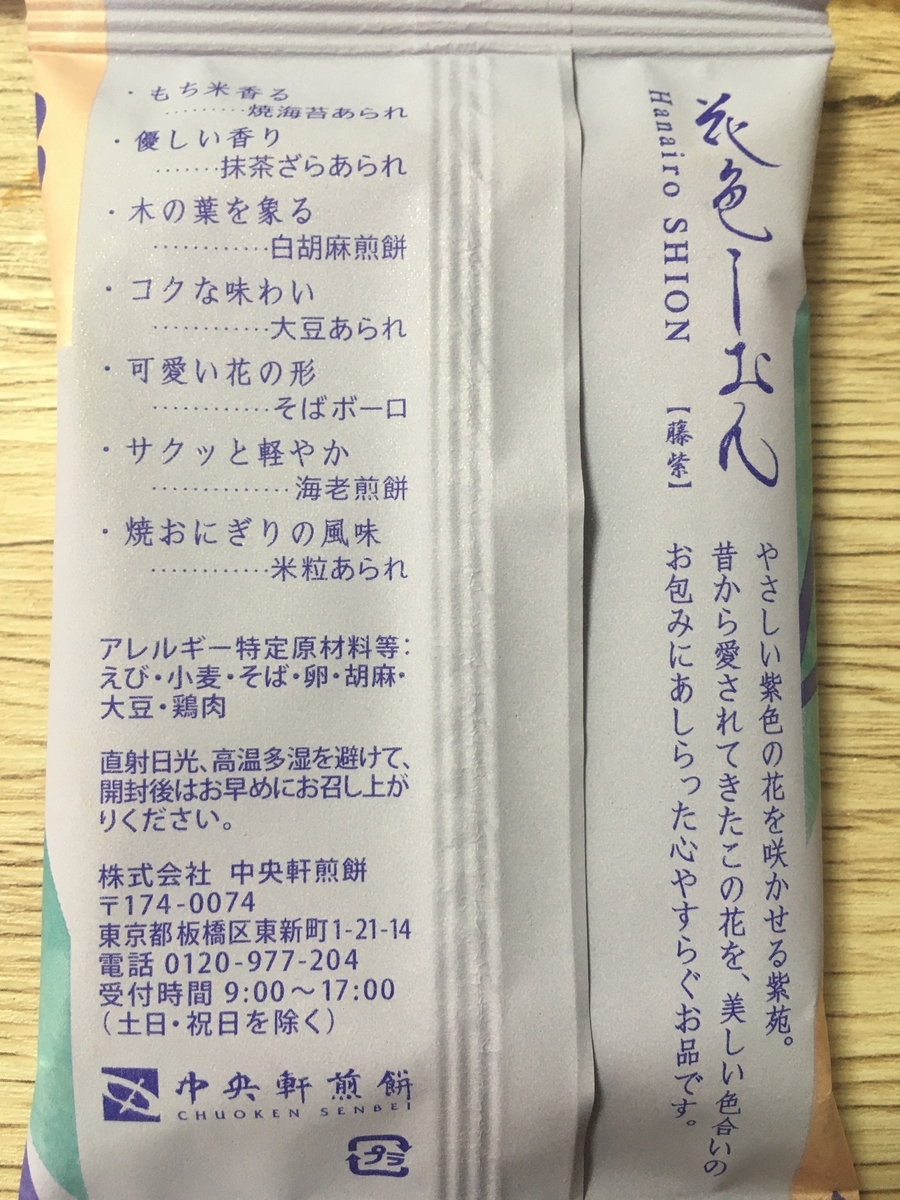 花色しおん
Hanairo SHION
【藤紫】
やさしい紫色の花を咲かせる紫苑。
昔から愛されてきたこの花を、美しい色合いの
お包みにあしらった心やすらぐお品です。
・もち米香る
………焼海苔あられ
・優しい香り
……抹茶ざらあられ
・木の葉を象る
…………白胡麻煎餅
・コクな味わい
…………大豆あられ
・可愛い花の形
…………そばボーロ
・サクッと軽やか
……………海老煎餅
・焼おにぎりの風味
…………米粒あられ
アレルギー特定原材料等：
えび・小麦・そば・卵・胡麻・
大豆・鶏肉
直射日光、高温多湿を避けて、
開封後はお早めにお召し上が
りください。
株式会社 中央軒煎餅
〒174-0074
東京都板橋区東新町1-21-14
電話 0120-977-204
受付時間 9:00～17:00
（土日・祝日を除く）
中央軒煎餅
CHUOKEN SENBEI
プラ